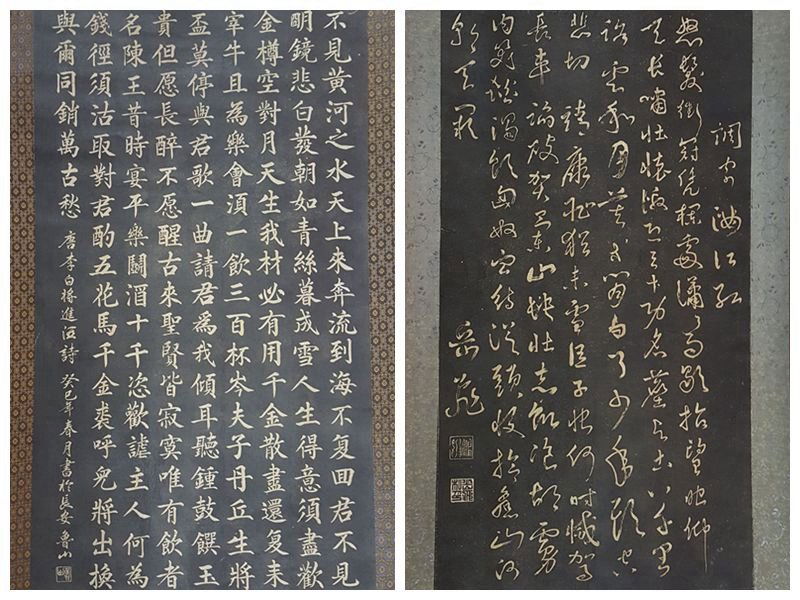 不見黃河之水天上來奔流到海不复回君不見
明鏡悲白發朝如青絲暮成雪人生得意須盡歡
金樽空對月天生我材必有用千金散盡還复来
宰牛且為樂會湏一飲三百杯岑夫子丹丘生將
盃莫停與君歌一曲請君爲我傾耳聽鍾鼓饌玉
貴但愿長醉不愿醒古來聖賢皆寂寞唯有飲者
名陳王昔時宴平樂鬬酒十千恣歡謔主人何為
錢徑須沽取對君酌五花馬千金裘呼兒將出換
與爾同銷萬古愁 唐李白將進酒詩 癸巳年春月書於長安魯山
調寄滿江紅
怒髮衝冠凭欄處瀟瀟雨歇抬望眼仰
天長嘯壯懷激烈三十功名塵與土八千里
路雲和月莫等閑白了少年頭空
悲切 靖康恥猶未雪臣子恨何時憾駕
長車踏破賀蘭山缺壯志飢飡胡虜
肉笑談渴飲匈奴血待從頭收拾舊山河
朝天闕
岳飛